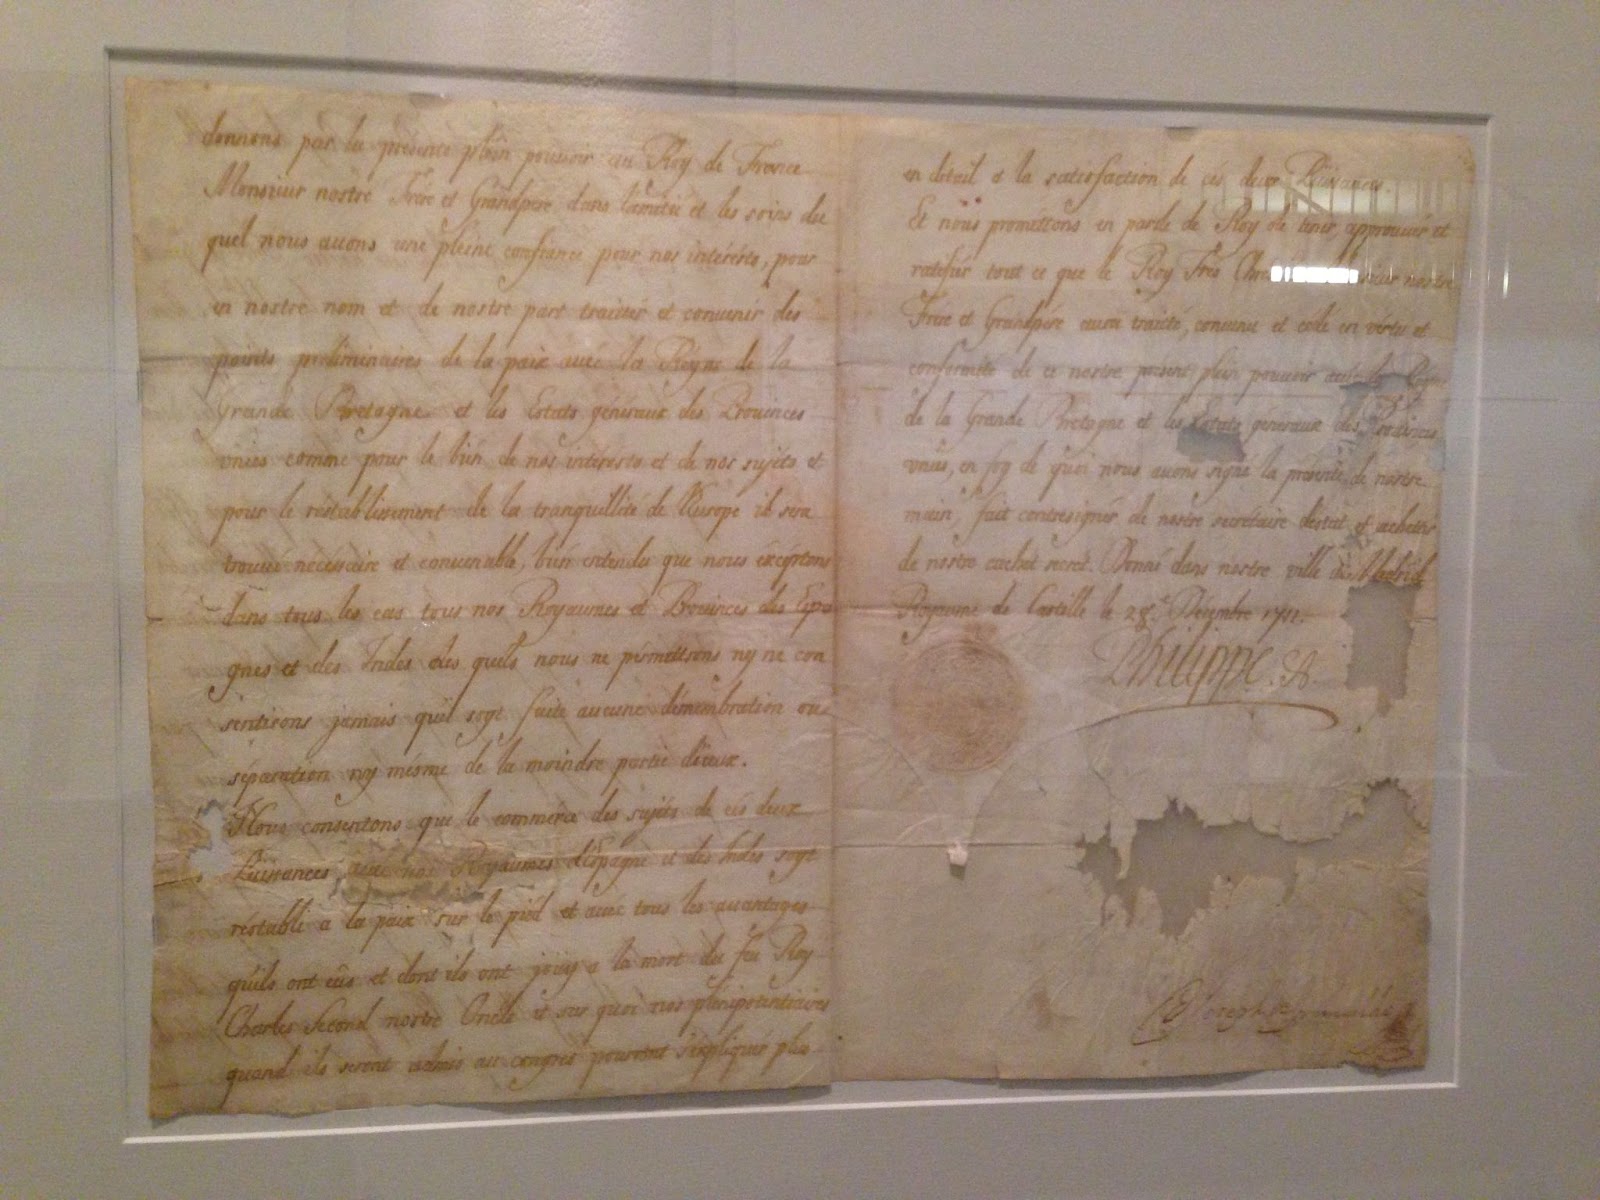 donnons par la presente plein pouvoir au Roy de France
Monsieur nostre Frere et Grandpere dans lamitié et les soins du
quel nous auons une pleine confiance pour nos intérésts, pour
en nostre nom et de nostre part traiter et conuenir des
points preliminaires de la paix auec la Reyne de la
Grande Bretagne et les Estats généraux des Prouinces
vnies comme pour le bien de nos intérésts et de nos sujéts et
pour le réstablissement de la tranquillité de l'Europe il sera
trouué nécéssaire et conuenable, bien entendu que nous éxcéptons
dans tous les cas tous nos Royaumes et Prouinces des Espa
gnes et des Indes des quels nous ne pérméttrons ny ne con
sentirons jamais qu'il soyt faite aucune démembration ou
séparation ny mésme de la moindre partie d'iceux.
Nous consentons que le commerce des sujéts de cés deux
Püissances auec nos Royaumes d'Espagne et des Indes soyt
réstabli a la paix sur le pied et auéc tous les auantages
qu'ils ont eüs et dont ils ont joüy a la mort du feu Roy
Charles Second nostre Oncle et sur quoi nos plénipotentiaires
quand ils seront admis au congrés pourront s'expliquer plus
en détail a la satisfaction de cés deux Püissances.
Et noüs prométtons en parole de Roy de tenir, approuuér et
ratifiér tout ce que le Roy Tres nostre
Frere et Grandpére aura traicté, conuenu et cedé en vértu et
conformité de ce nostre présent plein pouvoir auec la Reyne
de la Grande Bretagne et les Estats généraux des Prouinces
vnies, en foy de quoi nous auons signé la présente de nostre
main, fait contresignér de nostre secrétaire déstat et
de nostre cachet secret. Donné dans nostre ville de Madrid
Royaume de Castille le 28.e Décembre 1711.
Philippe.
Joseph Grimaldo